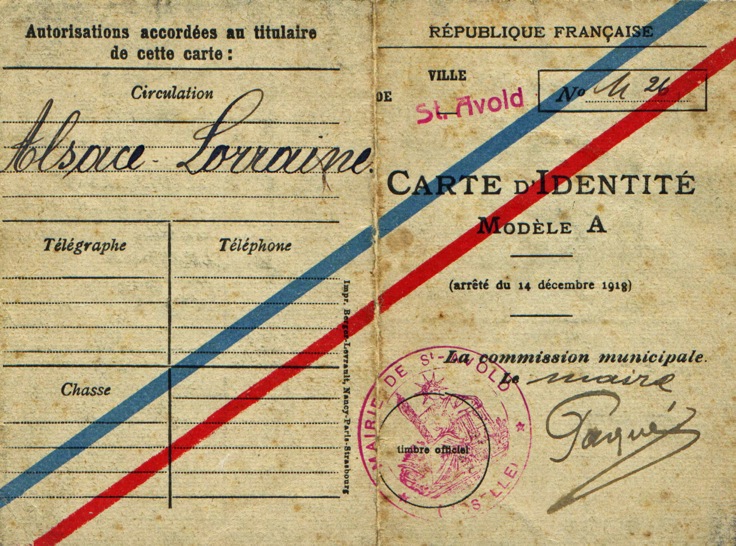 Autorisations accordées au titulaire
de cette carte :
Circulation
Alsace-Lorraine.
Télégraphe
Téléphone
Chasse
Impr. Berger-Levrault, Nancy-Paris-Strasbourg
RÉPUBLIQUE FRANÇAISE
VILLE
DE St. Avold
No 1126
CARTE D'IDENTITÉ
MODÈLE A
(arrêté du 14 décembre 1918)
La commission municipale.
Le maire
MAIRIE DE St-AVOLD
timbre officiel
(MOSELLE)